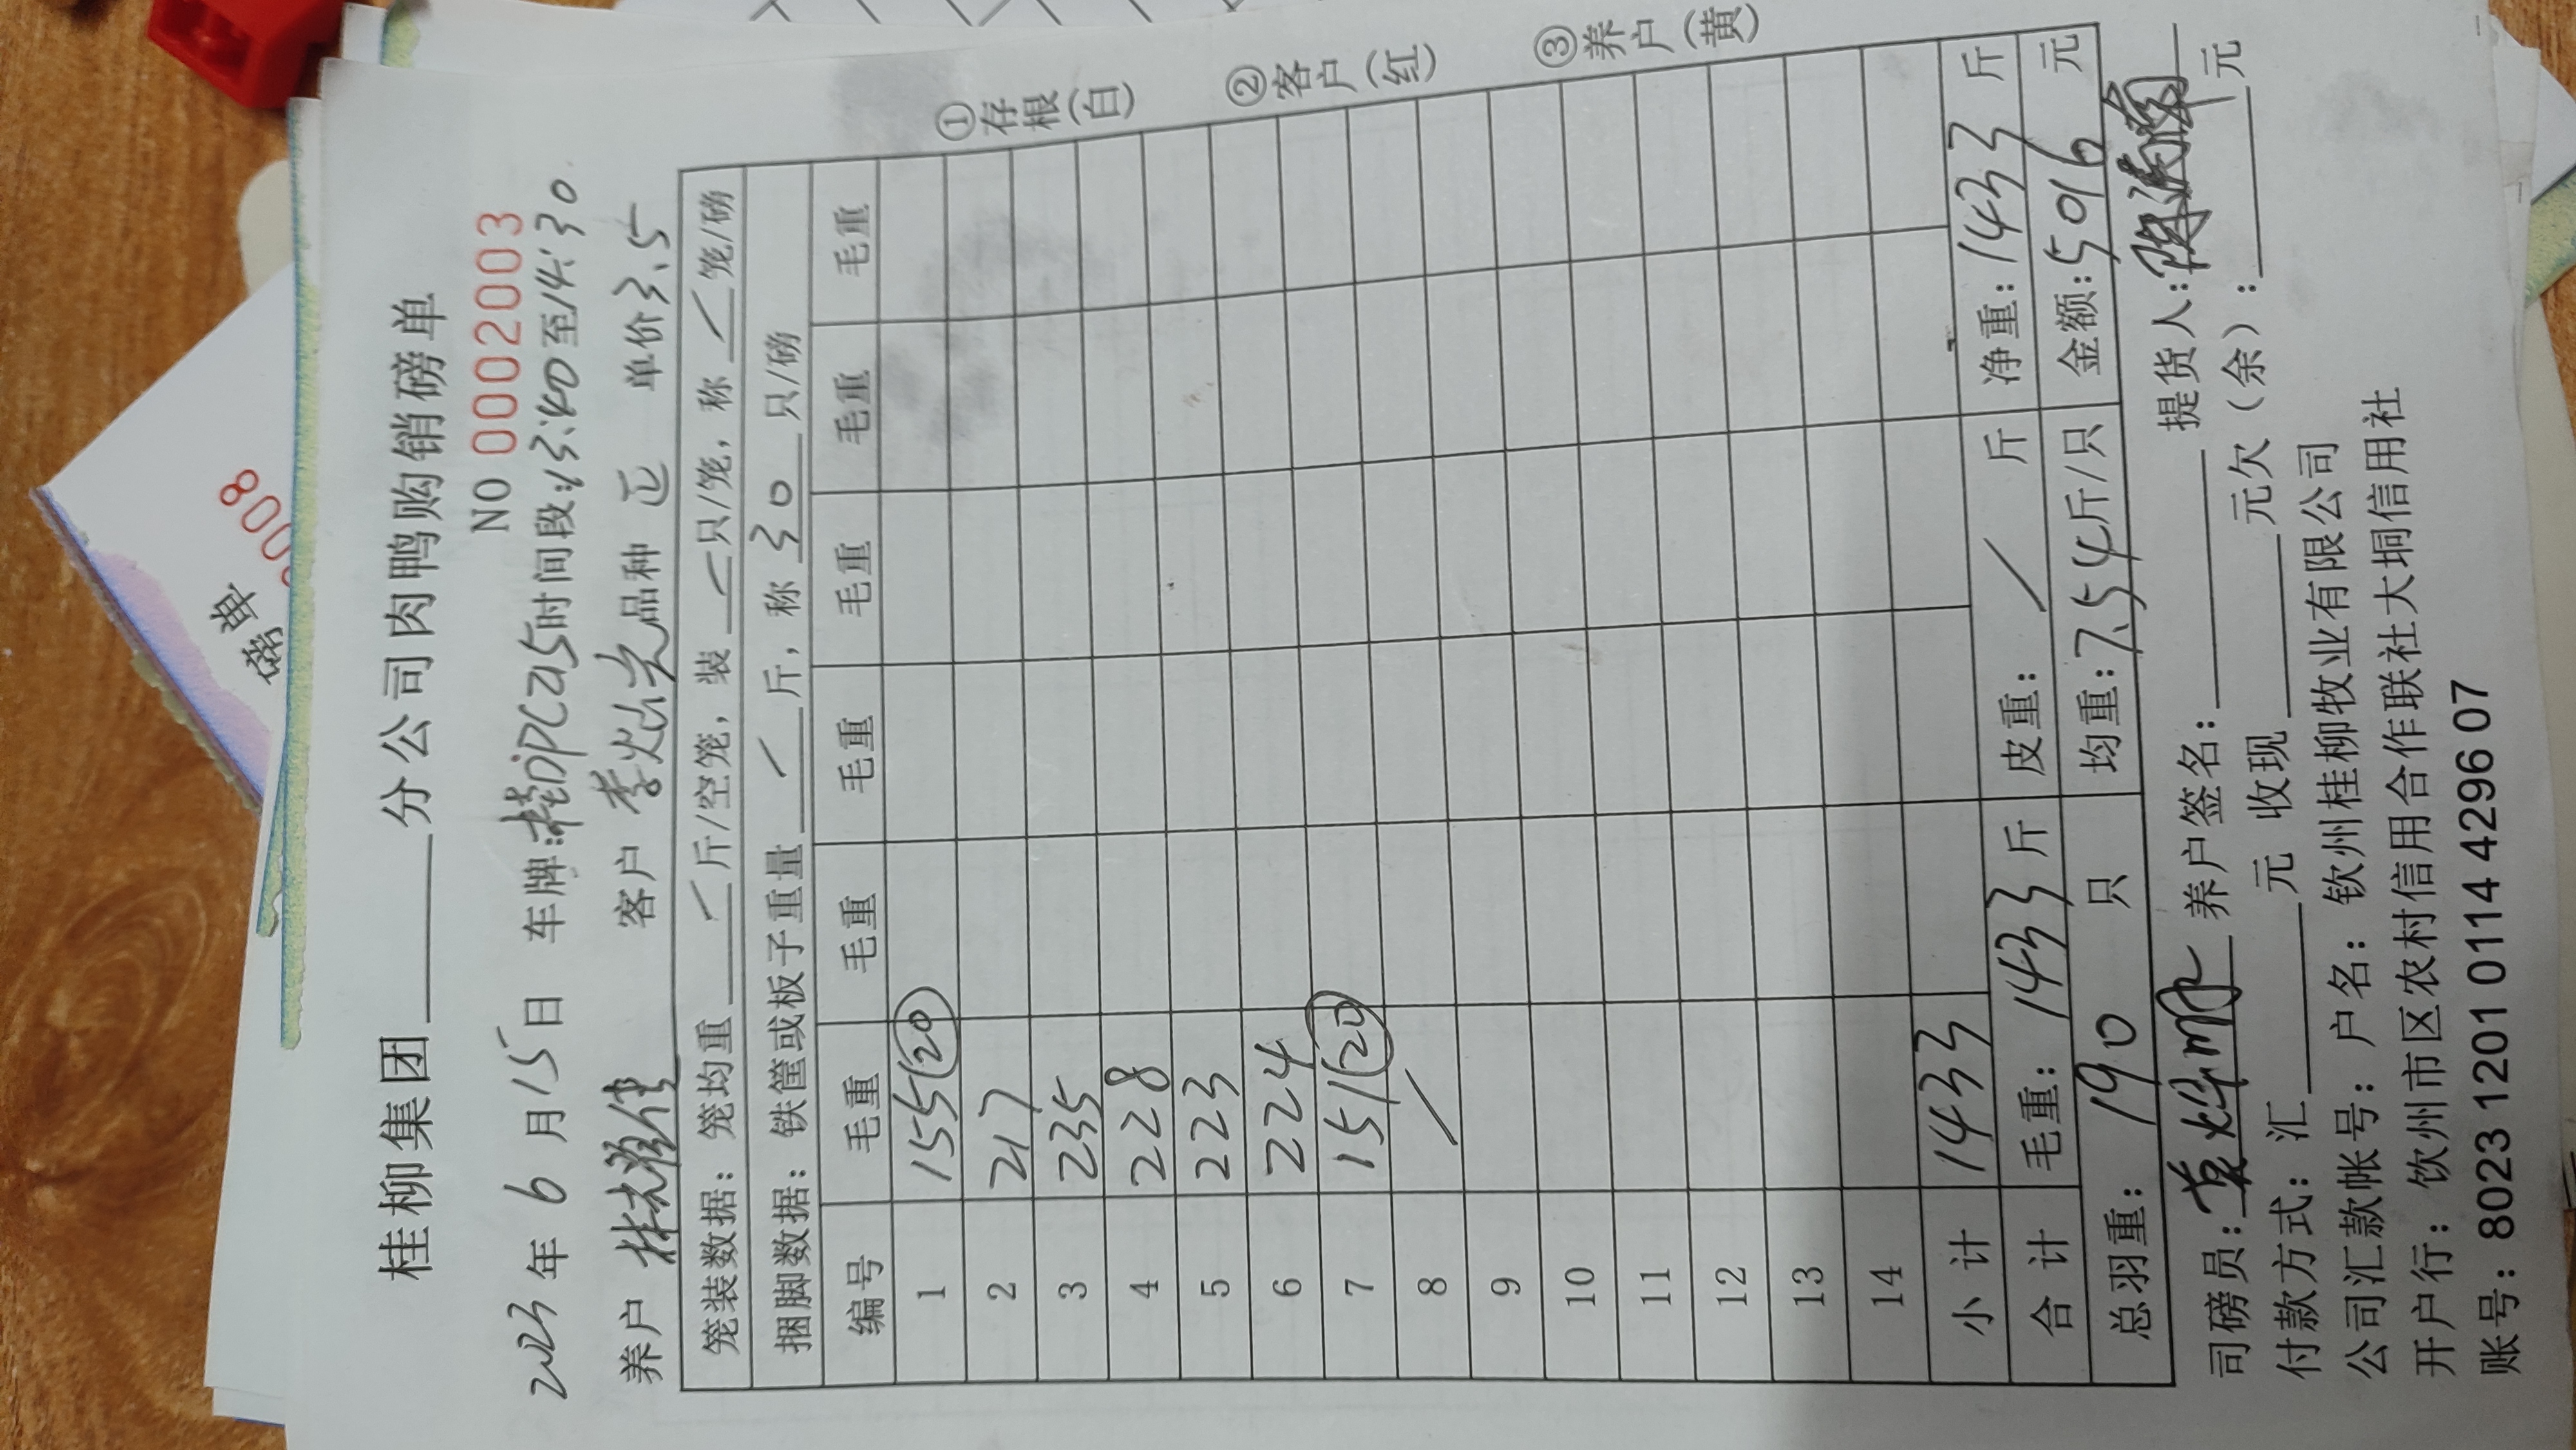 桂柳集团______分公司肉鸭购销磅单
NO 0002003
2023年 6 月15日 车牌:桂DPC215时间段:13:40至14:30
养户 客户 品种 正 单价3.5
笼装数据：笼均重 / 斤/空笼，装 / 只/笼，称 / 笼/磅
捆脚数据：铁筐或板子重量 / 斤，称 30 只/磅
编号 毛重 毛重 毛重 毛重 毛重 毛重
1 155(20)
2 217
3 235
4 228
5 223
6 224
7 151(20)
8 /
9
10
11
12
13
14
小计 1433
合计 毛重：1433斤 皮重： / 斤 净重：1433 斤
总羽重：190 只 均重：7.54斤/只 金额：5016 元
司磅员： 养户签名：______ 提货人：
付款方式：汇______元 收现______元欠（余）：______元
公司汇款帐号：户名：钦州桂柳牧业有限公司
开户行：钦州市区农村信用合作联社大垌信用社
账号：8023 1201 0114 4296 07
①存根(白)
②客户(红)
③养户(黄)
磅单
008